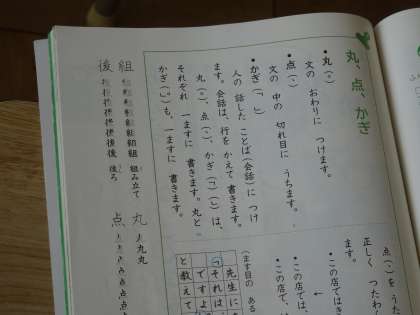 丸、点、かぎ
・丸(。)
文の おわりに つけます。
・点(、)
文の 中の 切れ目に うちます。
・かぎ(「 」)
人の 話した ことば(会話)に つけ
ます。会話は、行を かえて 書きます。
丸(。)、点(、)、かぎ(「)(」)は、
それぞれ 一ますに 書きます。丸と
かぎ(。」)も、一ますに 書きます。
点(、)を うた
正しく つたわ
ます。
・この店では
・この店で、は
(ます目の ある
先生に
「それは
ですよ
と教えて
組 組み立て
後 後ろ
丸 丸
点